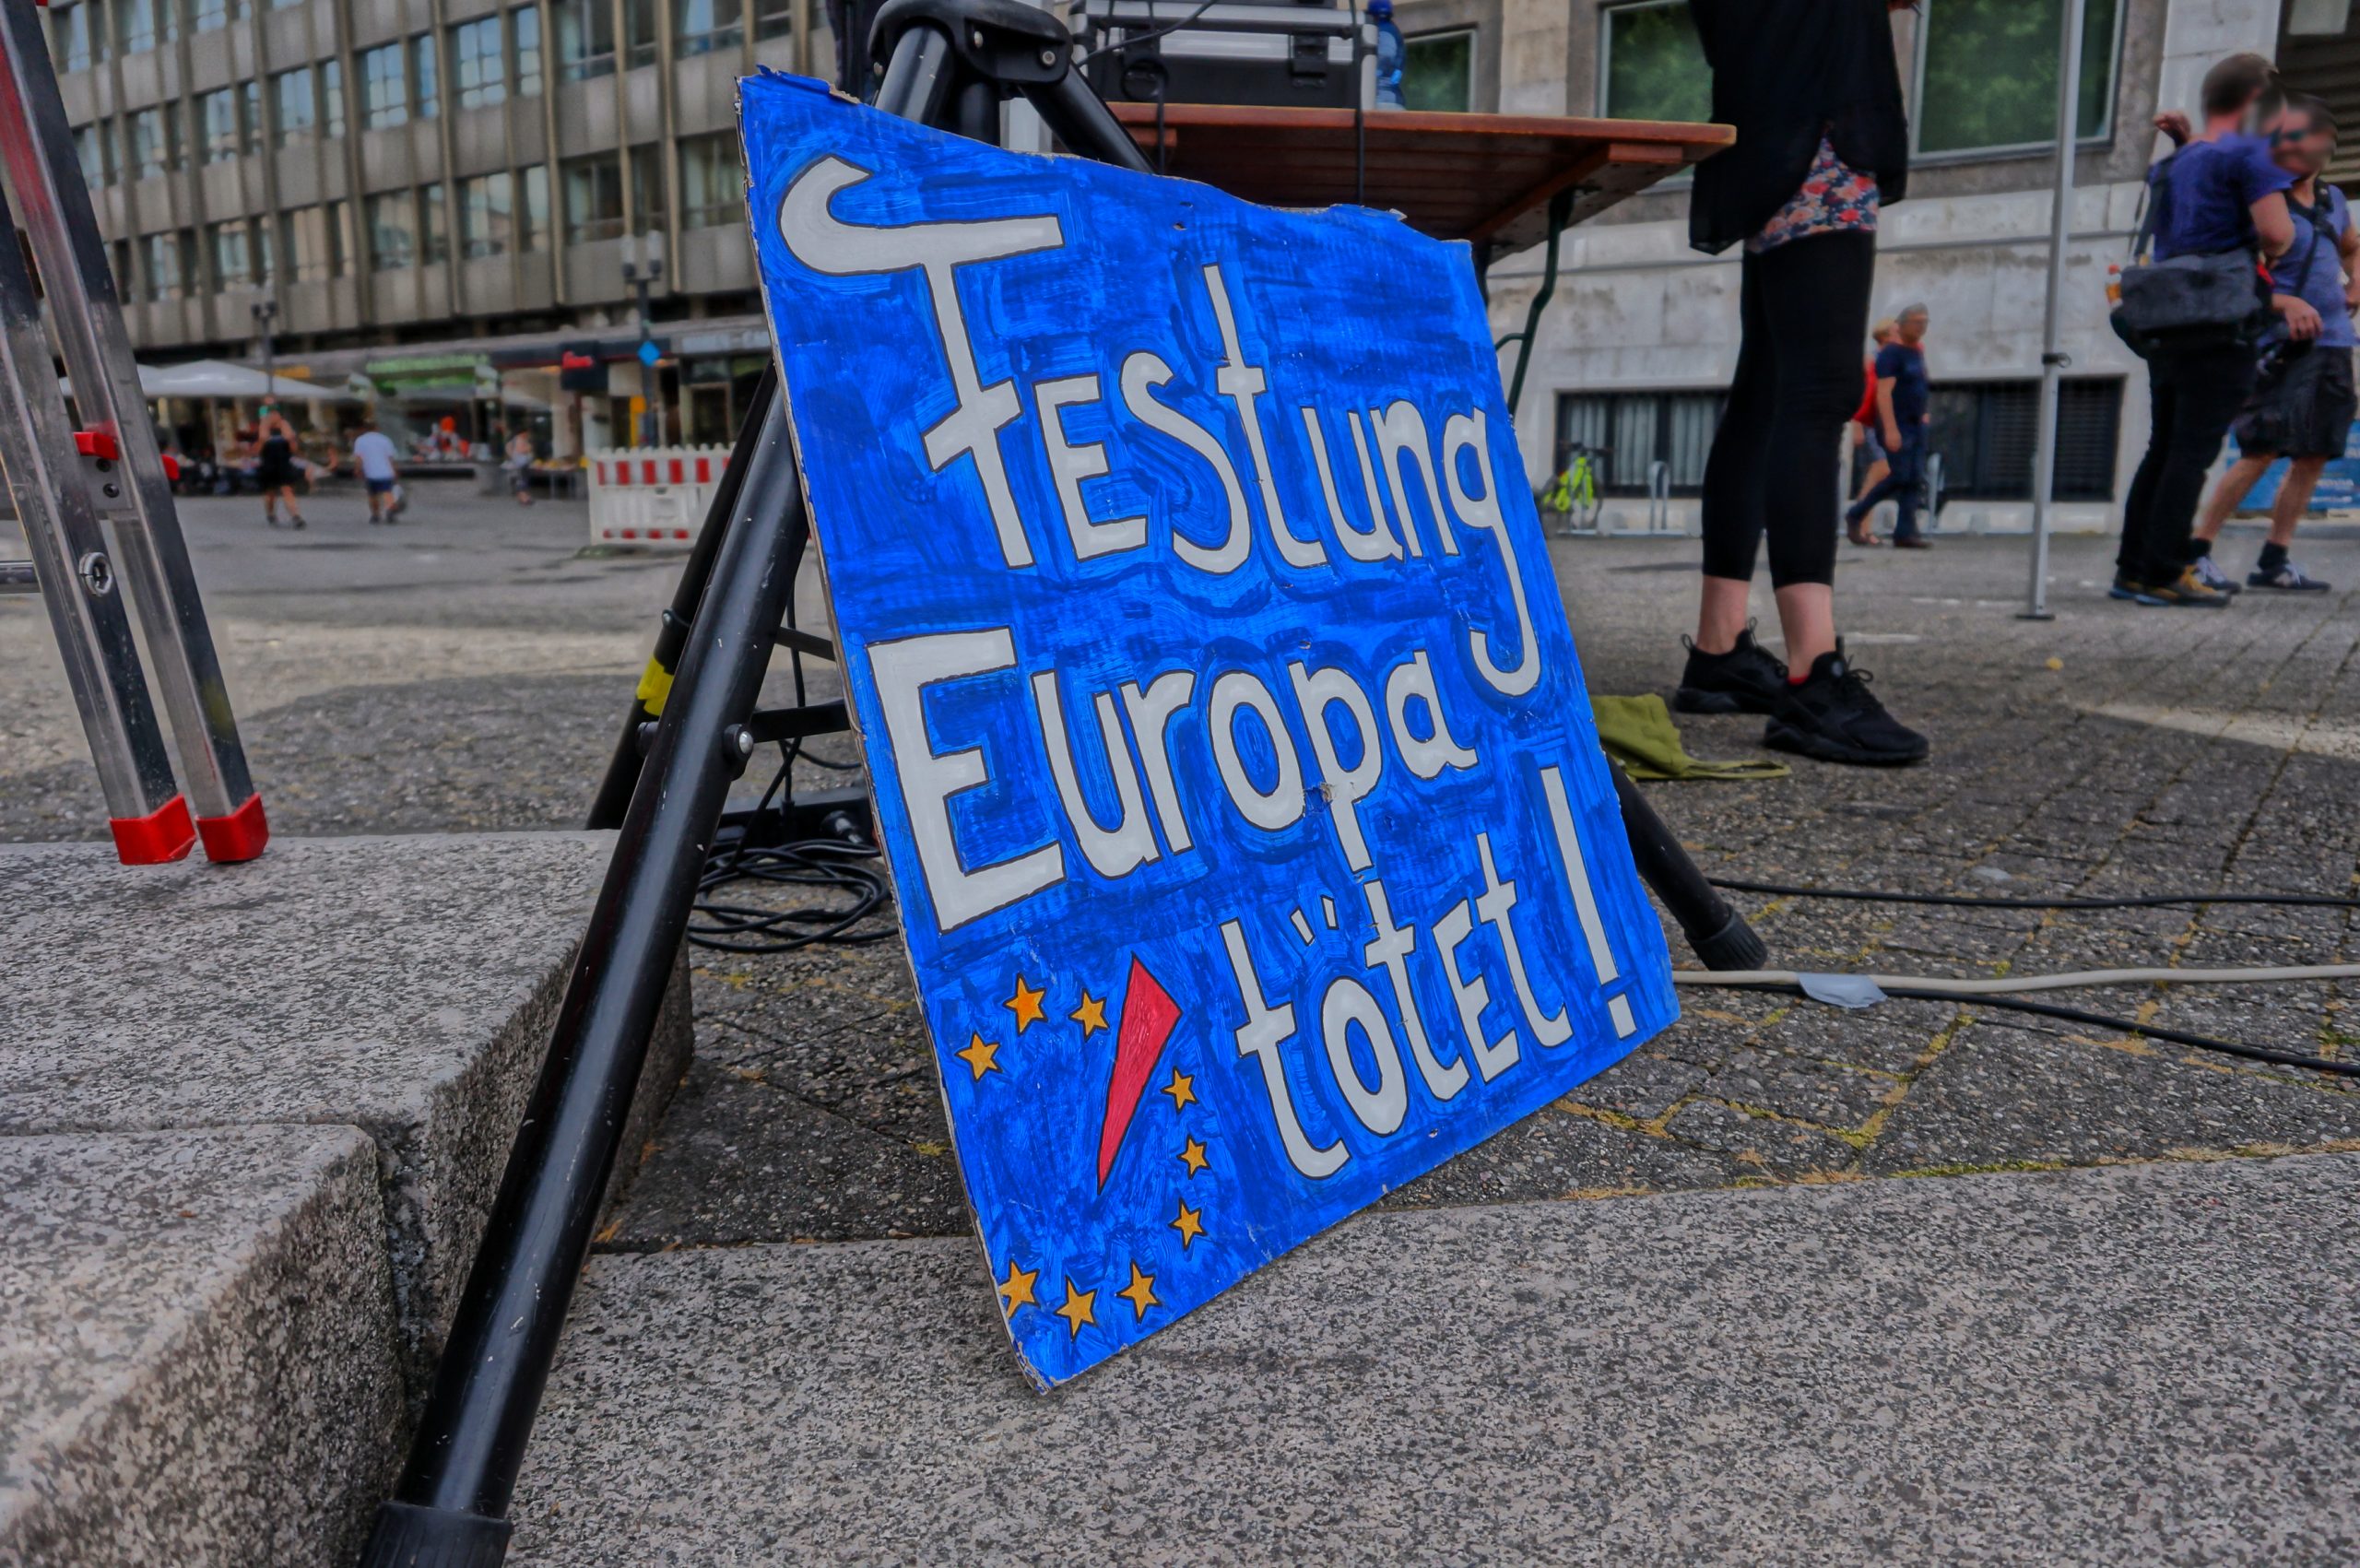 Festung
Europa
tötet!